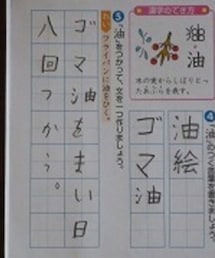 漢字のでき方
油・油
木の実からしぼりとったあぶらを表す。
④「油」のつく言葉を書きましょう。
油絵
ゴマ油
⑤「油」をつかって、文を一つ作りましょう。
れい フライパンに油をひく。
ゴマ油をまい日
八回つかう。